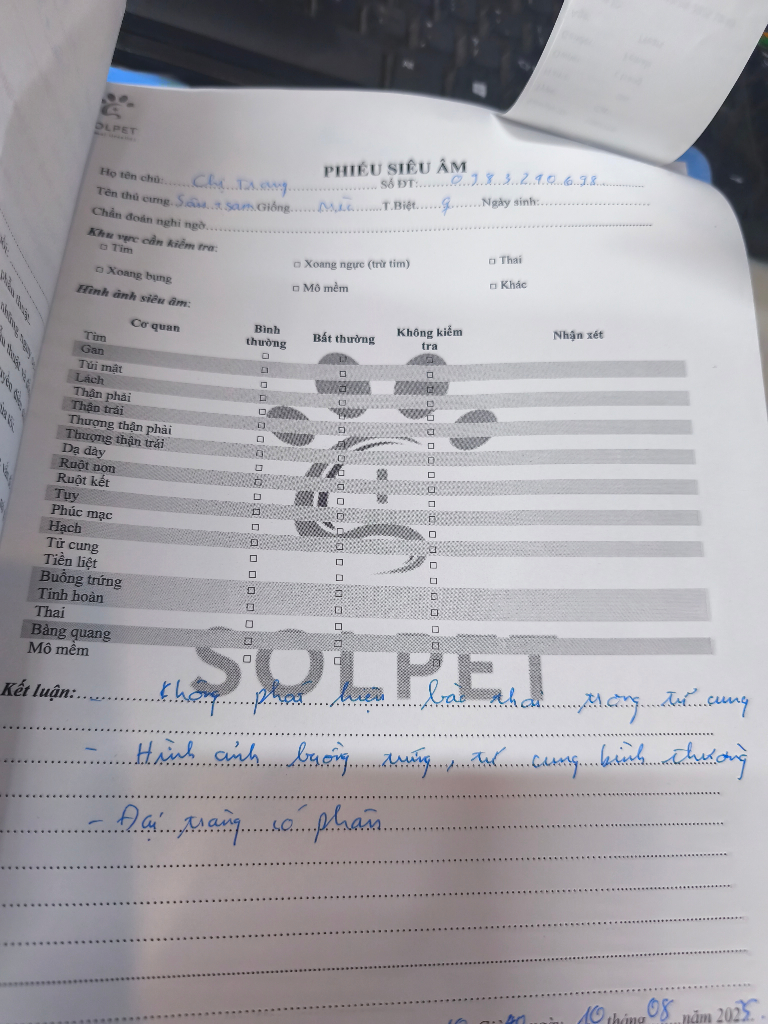 OLPET
PHIẾU SIÊU ÂM
Họ tên chủ: Chị Trang Số ĐT: 0983290698
Tên thú cưng Sâu + Sam Giống T.Biệt ♀ Ngày sinh:
Chẩn đoán nghi ngờ
Khu vực cần kiểm tra:
□ Tim □ Xoang ngực (trừ tim) □ Thai
□ Xoang bụng □ Mô mềm □ Khác
Hình ảnh siêu âm:
Cơ quan Bình thường Bất thường Không kiểm tra Nhận xét
Tim
Gan
Túi mật
Lách
Thận phải
Thận trái
Thượng thận phải
Thượng thận trái
Dạ dày
Ruột non
Ruột kết
Tụy
Phúc mạc
Hạch
Tử cung
Tiền liệt
Buồng trứng
Tinh hoàn
Thai
Bàng quang
Mô mềm
SOLPET
Kết luận: - Không phát hiện bào thai trong tử cung
- Hình ảnh buồng trứng, tử cung bình thường
- Đại tràng có phân
ngày 10 tháng 08 năm 2025